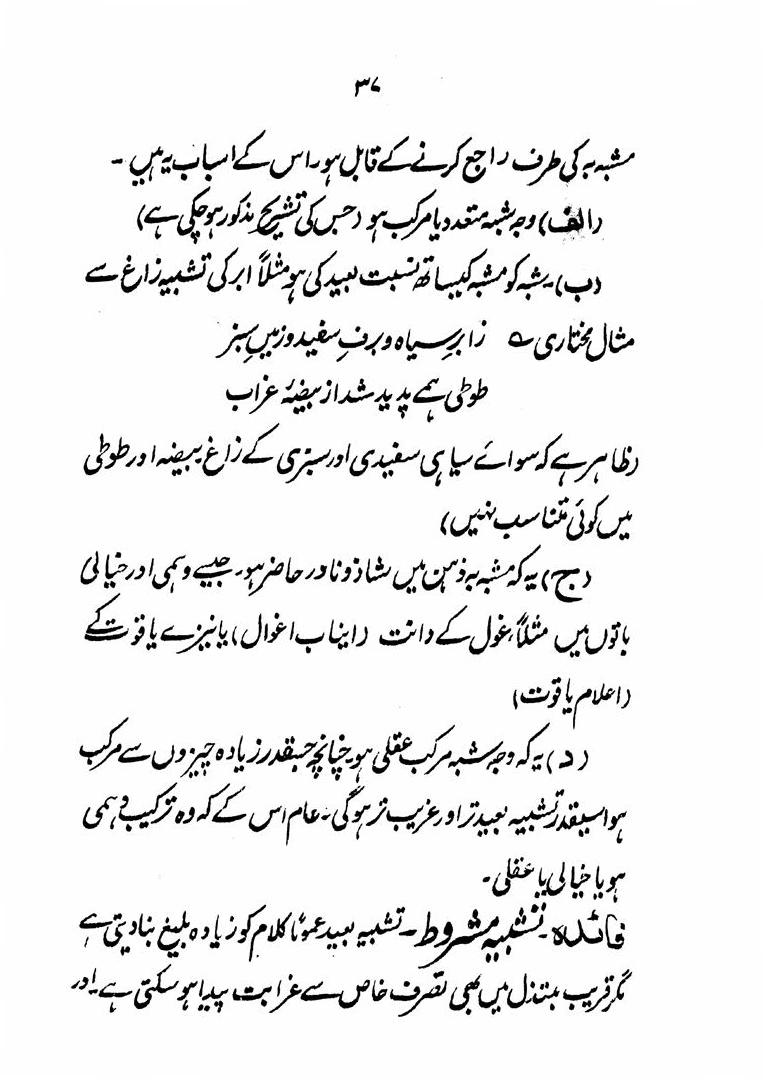 ۳۷
مشبہ بہ کی طرف راجع کرنے کے قابل ہو۔ اس کے اسباب یہ ہیں ۔
(الف) وجہ شبہ متعدد یا مرکب ہو (جس کی تشریح مذکور ہوچکی ہے)
(ب) ۔ شبہ کو مشبہ کیساتھ نسبت بعید کی ہو مثلاً ابر کی تشبیہ زاغ سے
مثال مختاری ؎ زابرِ سیاہ و برفِ سفید و زمینِ سبز
طوطی ہمے پدید شد از بیضۂ غراب
(ظاہر ہے کہ سوائے سیاہی سفیدی اور سبزی کے زاغ بیضہ اور طوطی
میں کوئی تناسب نہیں)
(ج) یہ کہ مشبہ بہ ذہن میں شاذ و نادر حاضر ہو۔ جیسے وہمی اور خیالی
باتوں میں مثلاً غول کے دانت (انیاب اغوال) یا نیزے یاقوت کے
(اعلام یاقوت)
(د) یہ کہ وجہ شبہ مرکب عقلی ہو چنانچہ جسقدر زیادہ چیزوں سے مرکب
ہو اسیقدر تشبیہ بعید تر اور غریب تر ہوگی۔ عام اس کے کہ وہ ترکیب وہمی
ہو یا خیالی یا عقلی ۔
فائدہ ۔ تشبیہ مشروط ۔ تشبیہ بعید عموماً کلام کو زیادہ بلیغ بنا دیتی ہے
مگر قریب مبتذل میں بھی تصرف خاص سے غرابت پیدا ہوسکتی ہے۔ اور